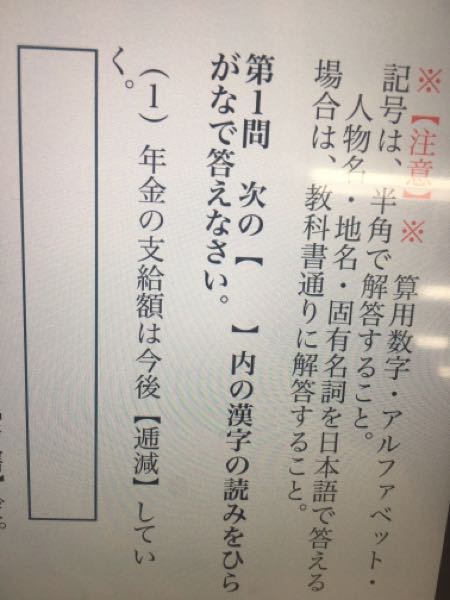 ※【注意】※　算用数字・アルファベット・
記号は、半角で解答すること。
人物名・地名・固有名詞を日本語で答える
場合は、教科書通りに解答すること。
第1問　次の【　　】内の漢字の読みをひら
がなで答えなさい。
(1) 年金の支給額は今後【逓減】してい
く。